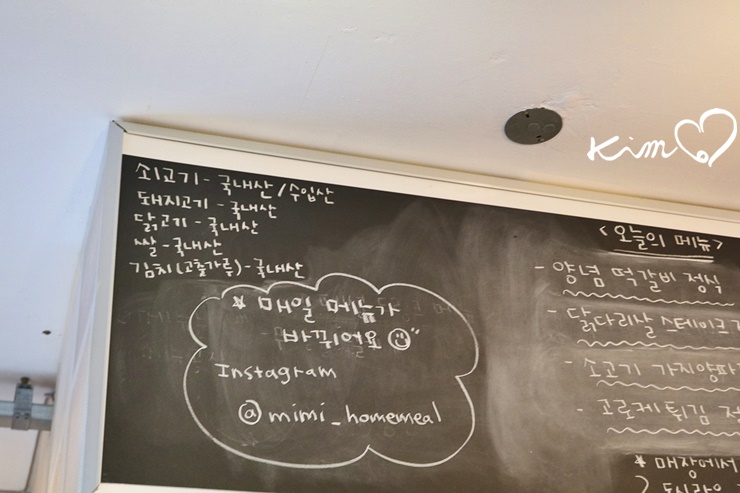 Kim
쇠고기 - 국내산 / 수입산
돼지고기 - 국내산
닭고기 - 국내산
쌀 - 국내산
김치(고춧가루) - 국내산
* 매일 메뉴가
바뀌어요
Instagram
@mimi_homemeal
<오늘의 메뉴>
- 양념 떡갈비 정식
- 닭다리살 스테이크
- 소고기 가지양파
- 고로케 튀김 정
* 매장에서